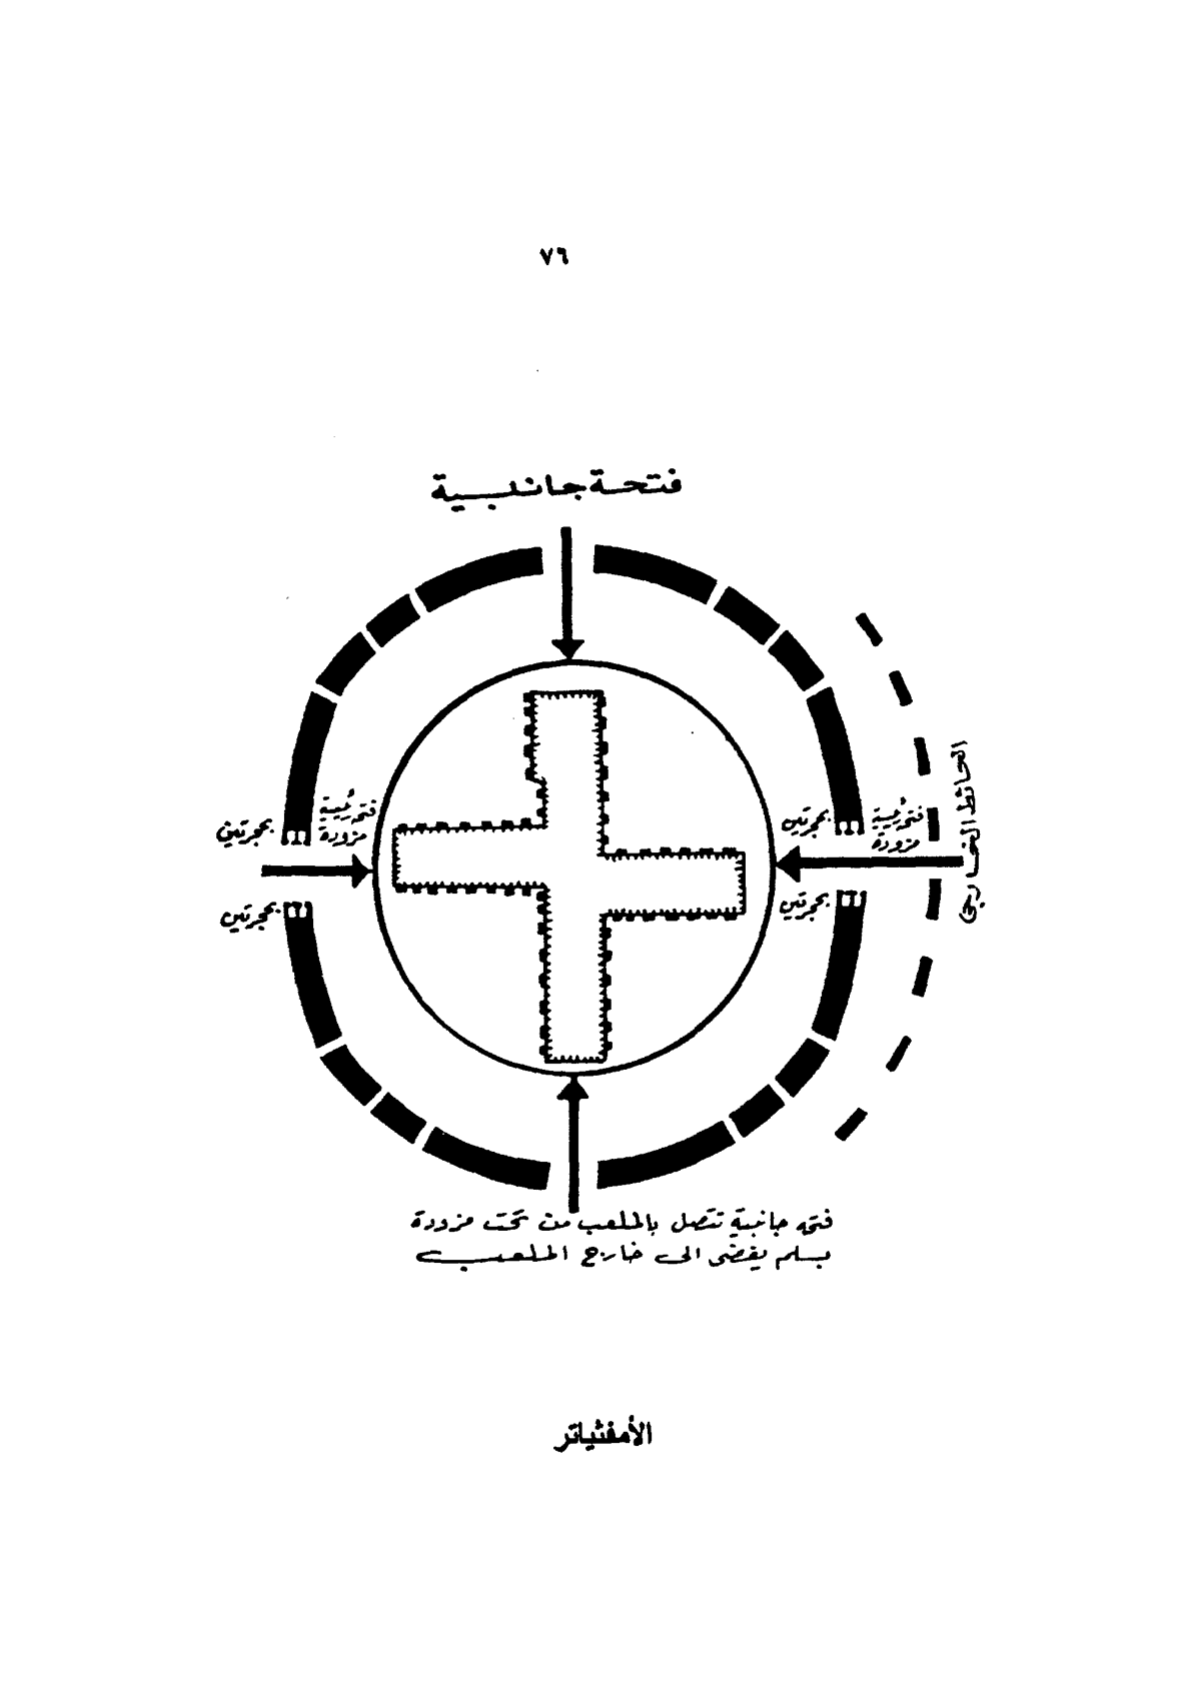 ٧٦
فتحة جانبية
الحائط الخارجى
فتحة رئيسية
مزودة
بحجرتين
بحجرتين
فتحة رئيسية
مزودة
بحجرتين
بحجرتين
فتحه جانبية تتصل بالملعب من تحت مزودة
بسلم يفضى الى خارج الملعب
الأمفثياتر